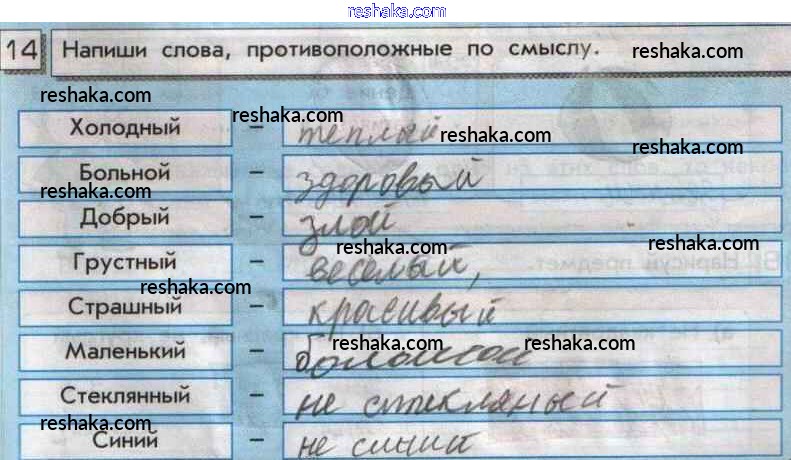 reshaka.com
14 Напиши слова, противоположные по смыслу. reshaka.com
reshaka.com
reshaka.com
Холодный – теплый reshaka.com
Больной – здоровый
reshaka.com reshaka.com
Добрый – злой
reshaka.com reshaka.com
Грустный – веселый,
reshaka.com
Страшный – красивый
Маленький – большой reshaka.com
Стеклянный – не стекляный
reshaka.com reshaka.com
Синий – не синий